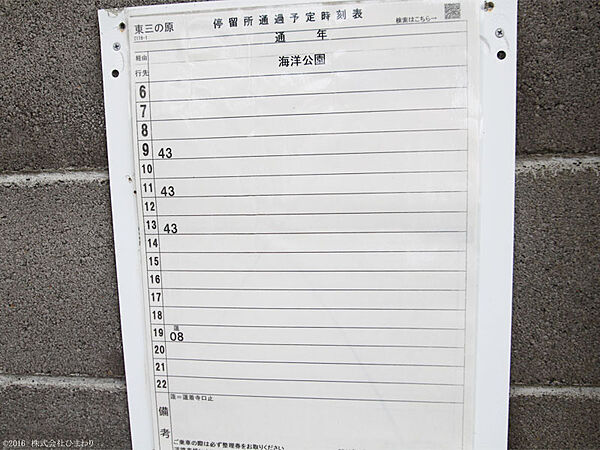 東三の原
停留所通過予定時刻表
検索はこちら→
通 年
経由
行先
海洋公園
6
7
8
9 43
10
11 43
12
13 43
14
15
16
17
18
蓮
19 08
20
21
22
備考
蓮=蓮着寺口止
ご乗車の際は必ず整理券をお取りください
©2016 株式会社ひまわり